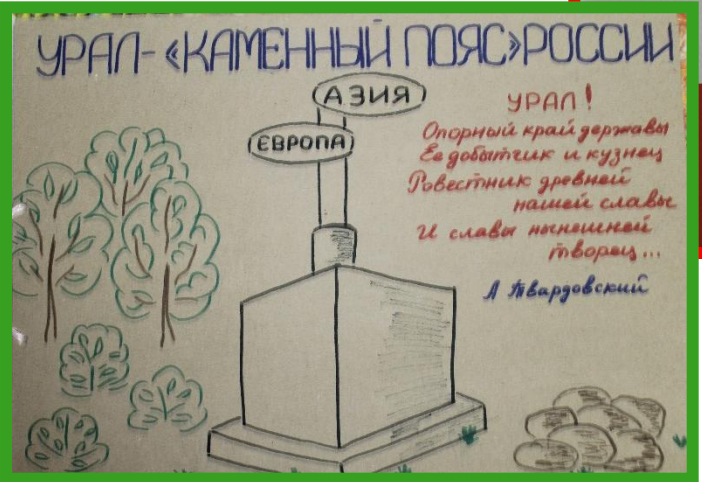 УРАЛ-«КАМЕННЫЙ ПОЯС» РОССИИ
АЗИЯ
ЕВРОПА
УРАЛ!
Опорный край державы
Ее добытчик и кузнец
Ровестник древней
нашей славы
И славы нынешней
творец...
А Твардовский